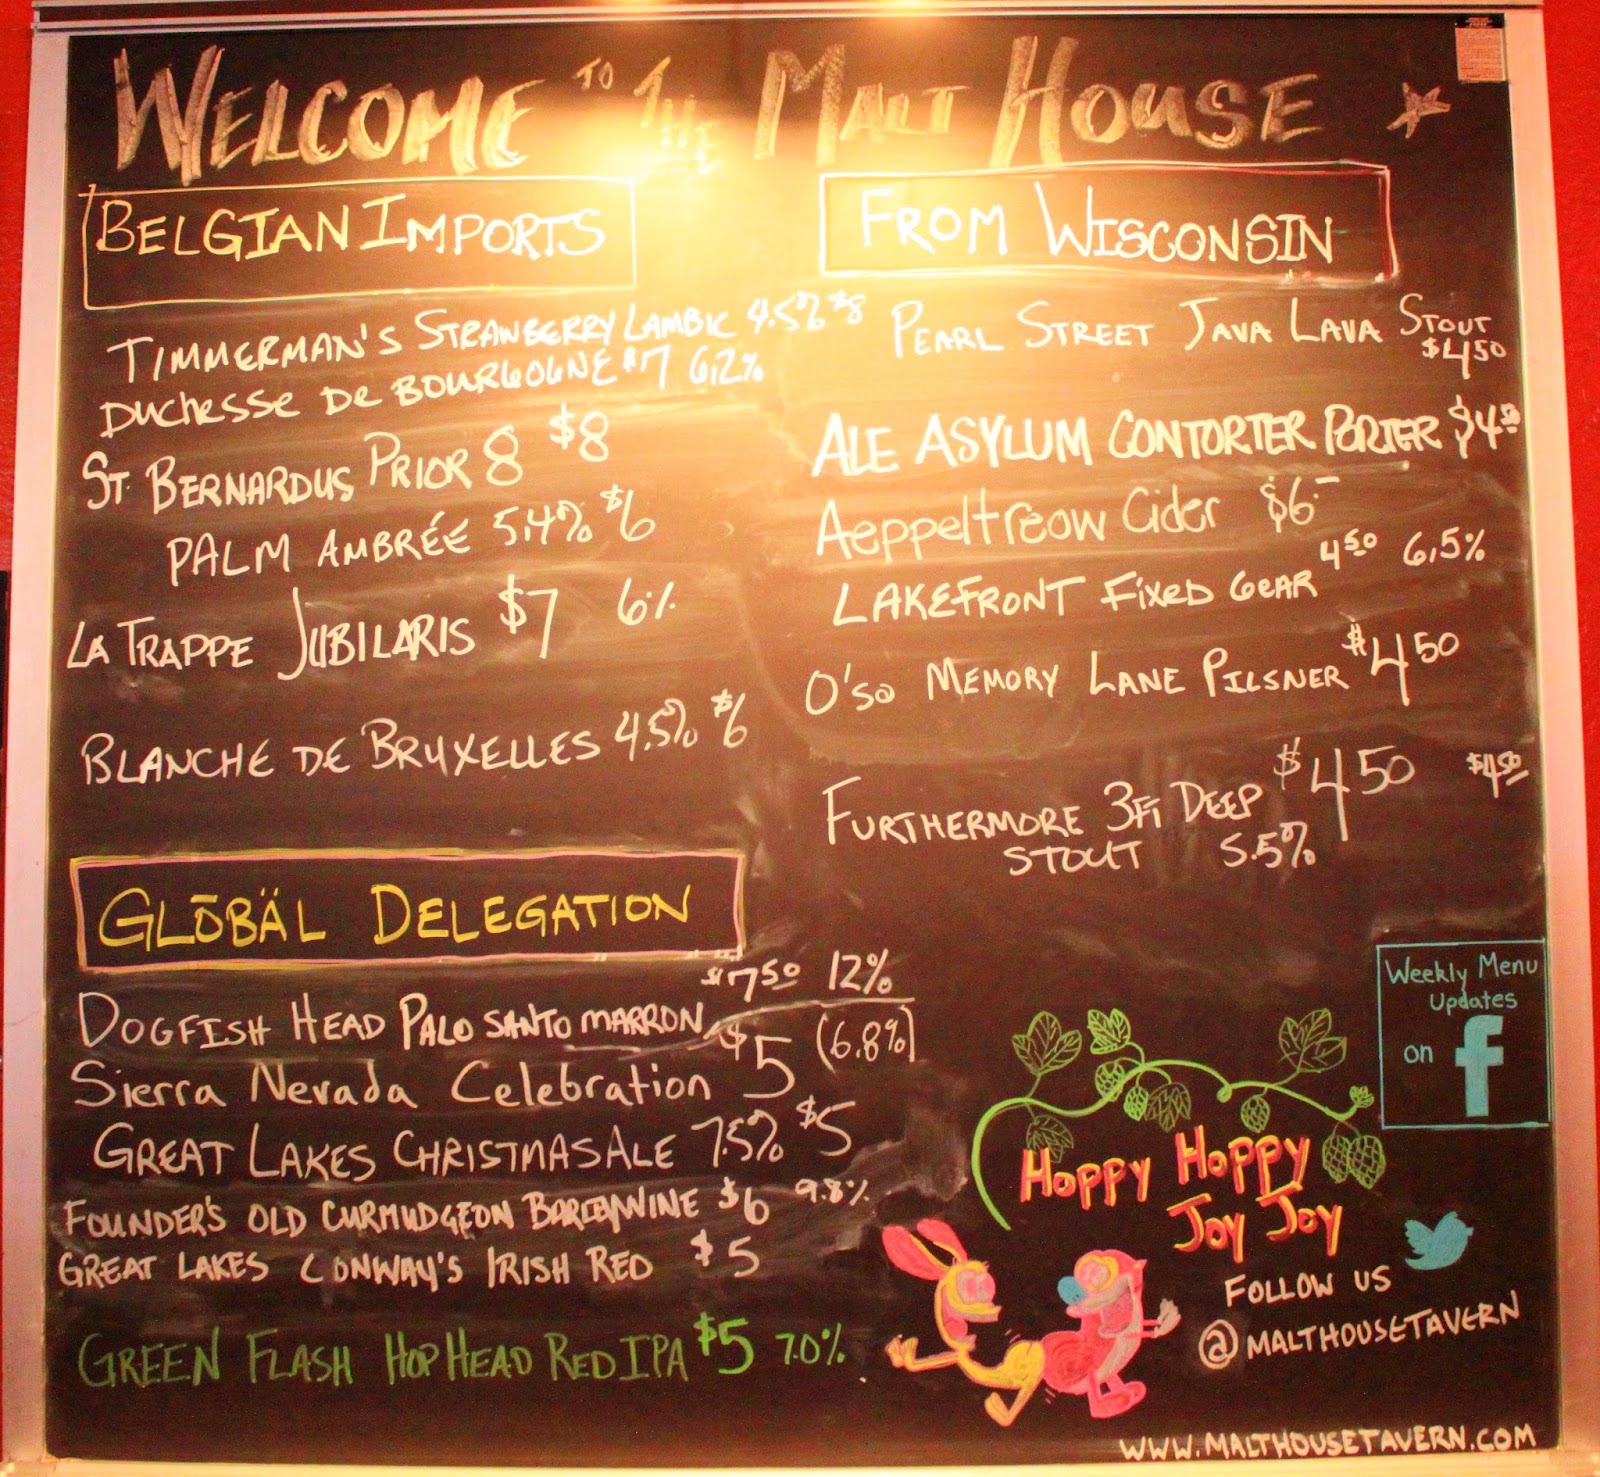 WELCOME TO THE MALT HOUSE
BELGIAN IMPORTS
TIMMERMAN'S STRAWBERRY LAMBIC 4.5% $8
DUCHESSE DE BOURGOGNE $7 6.2%
ST. BERNARDUS PRIOR 8 $8
PALM AMBRÉE 5.4% $6
LA TRAPPE JUBILARIS $7 6%
BLANCHE DE BRUXELLES 4.5% $6
GLŌBÄL DELEGATION
DOGFISH HEAD PALO SANTO MARRON $7.50 12%
Sierra Nevada Celebration $5 (6.8%)
GREAT LAKES CHRISTMAS ALE 7.5% $5
FOUNDER'S OLD CURMUDGEON BARLEYWINE $6 9.8%
GREAT LAKES CONWAY'S IRISH RED $5
GREEN FLASH HOP HEAD RED IPA $5 7.0%
FROM WISCONSIN
PEARL STREET JAVA LAVA STOUT
$4.50
ALE ASYLUM CONTORTER PORTER $4.50
Aeppeltreow Cider $6.-
LAKEFRONT FIXED GEAR 4.50 6.5%
O'so MEMORY LANE PILSNER $4.50
FURTHERMORE 3FT DEEP $4.50 $4.50
STOUT 5.5%
Weekly Menu
Updates
on f
HOPPY HOPPY
JOY JOY
FOLLOW US
@MALTHOUSETAVERN
WWW.MALTHOUSETAVERN.COM